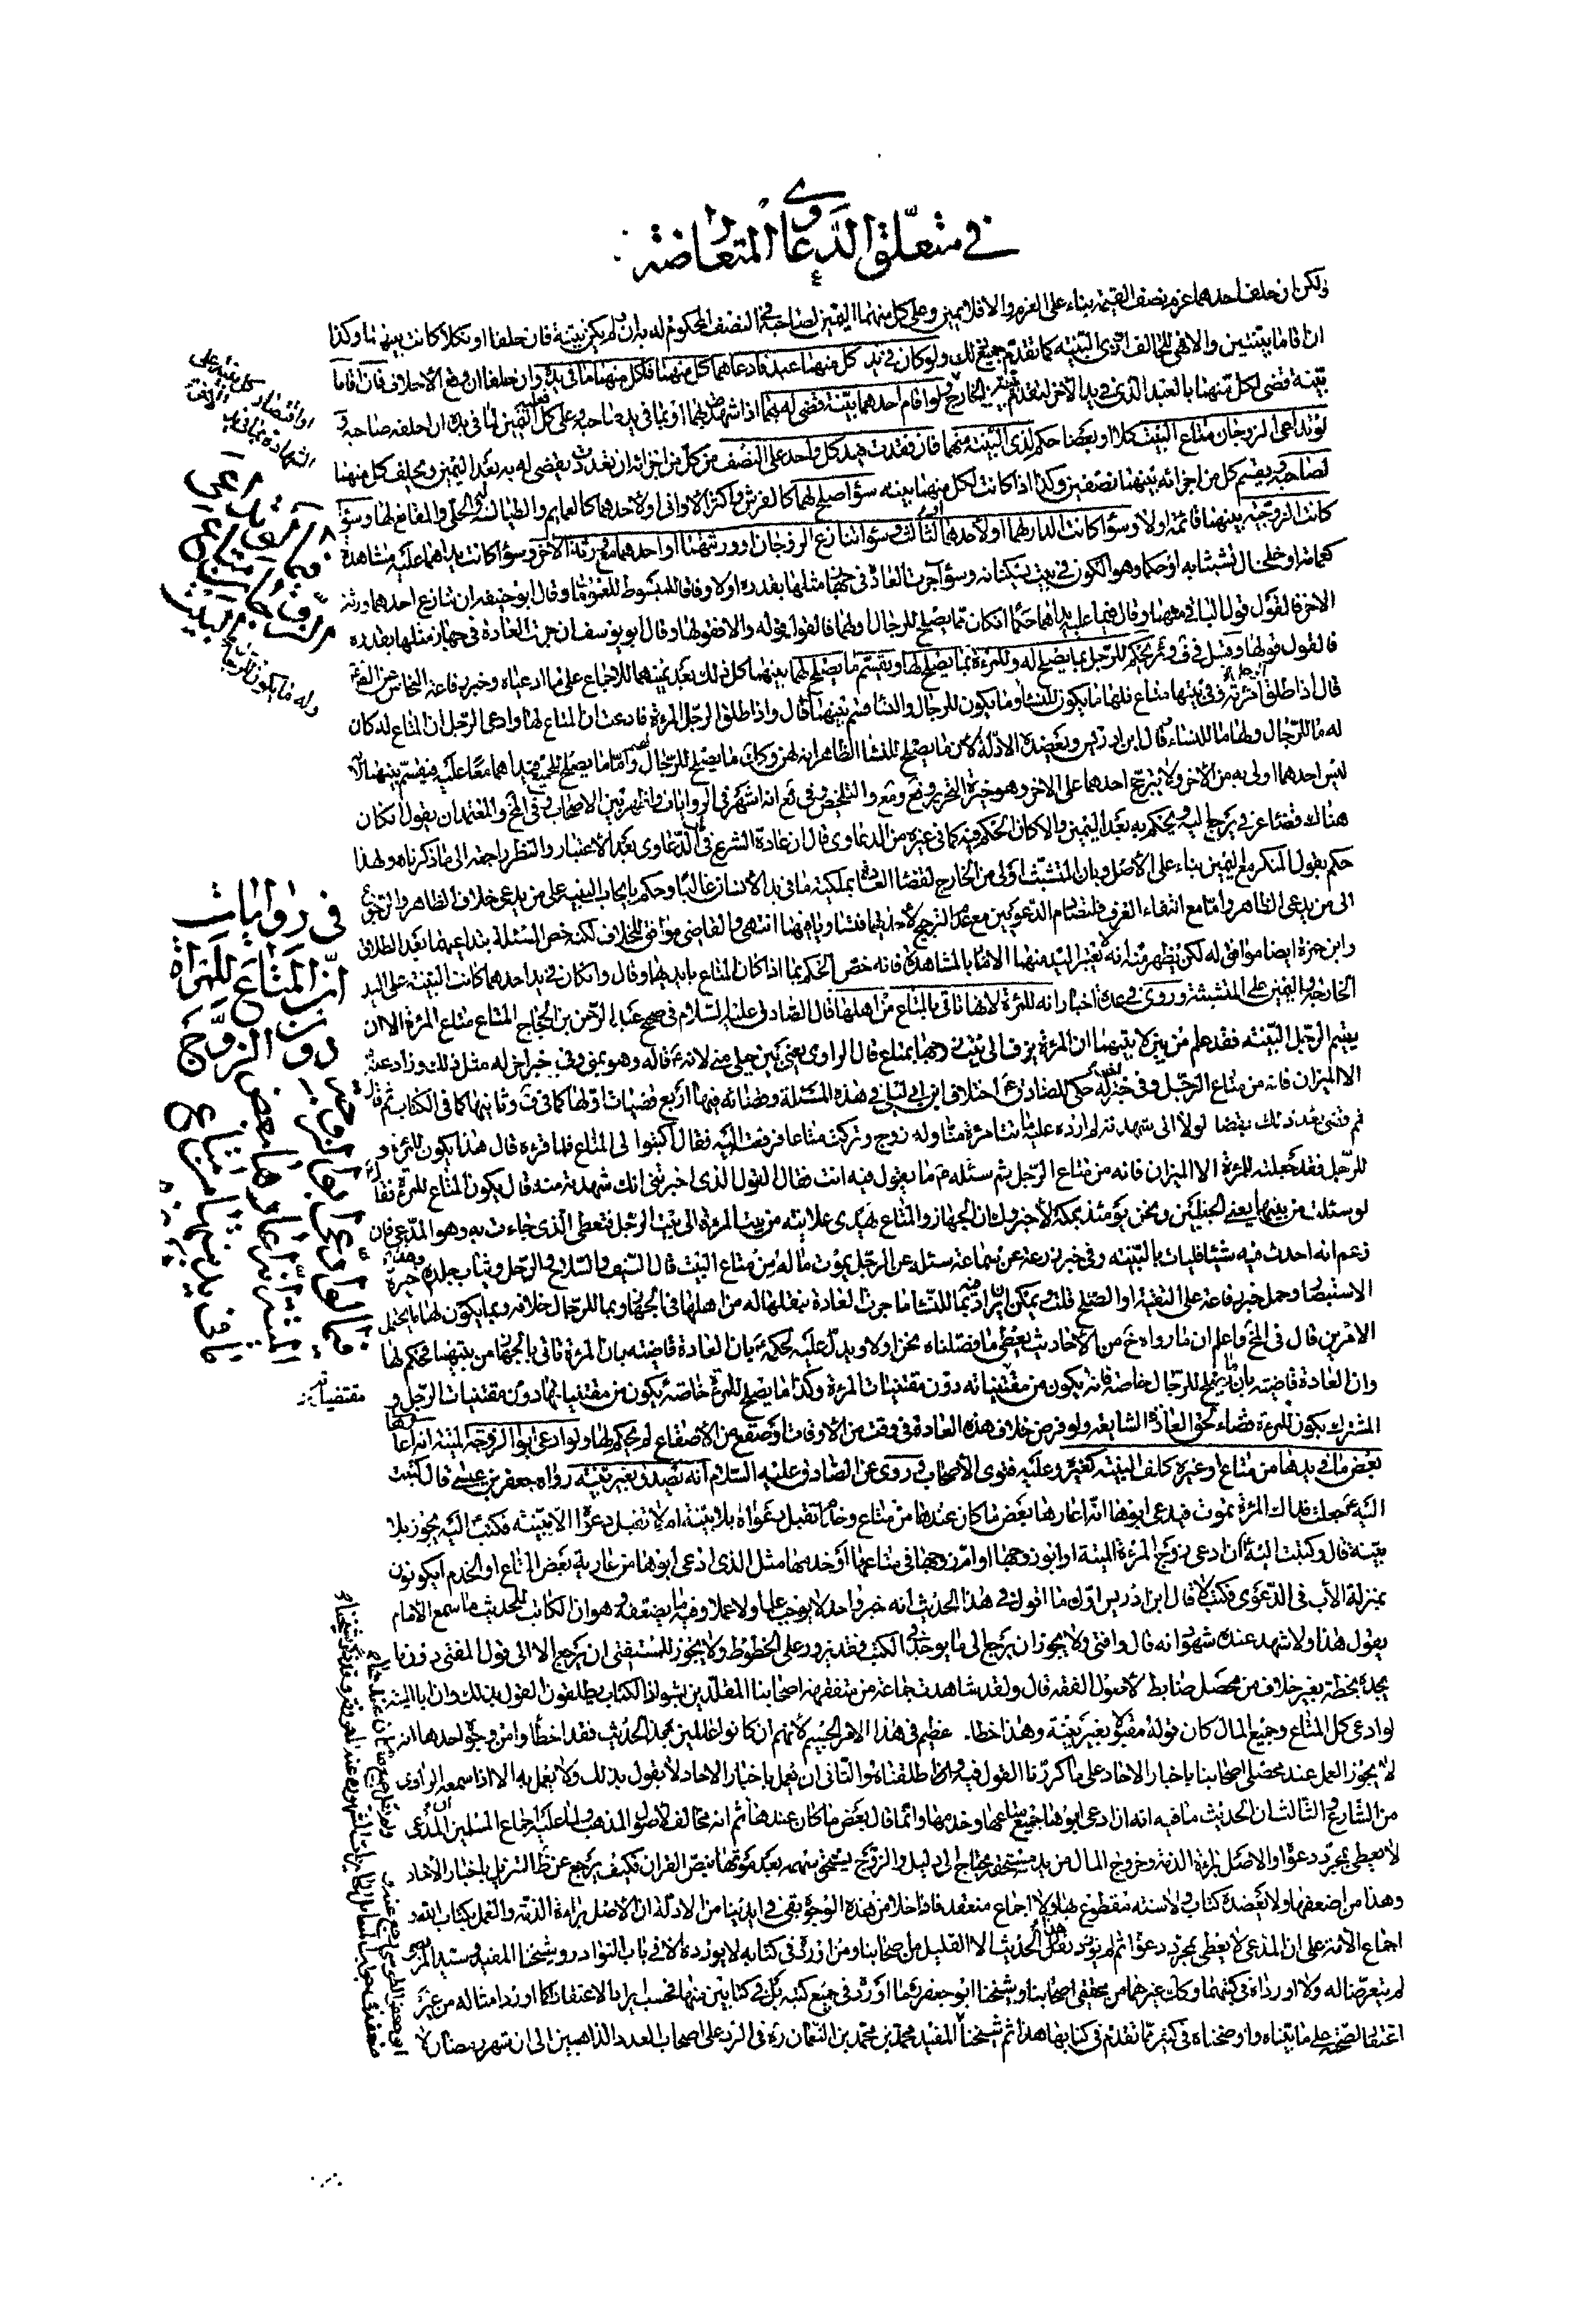 في متعلق الدعاوي المتعارضة
ولكن ان حلف احدهما غرم نصف القيمة بناء على الغرم والا فلا يمين وعلى كل منهما اليمين لصاحبه في النصف المحكوم له به ان لم يكن بينة فان حلفا او نكلا كانت بينهما وكذا
ان اقاما بينتين والا فهي للحالف او ذي البينة كما تقدم جميع ذلك ولو كان في يد كل منهما عبد فادعاهما كل منهما فلكل منهما ما في يده وان حلفا ان وقع الاحلاف فان اقاما
بينة قضى لكل منهما بالعبد الذي في يد الاخر لتقدم الخارج ولو اقام احدهما بينة قضى له بهما اذا شهدت بهما او بما في يد صاحبه وعلى كل اليمين لما في يده ان احلفه صاحبه
لو تداعى الزوجان متاع البيت كلا او بعضا حكم لذي البينة منهما فان فقدت فيد كل واحد على النصف من كل من اجزائه ان تعددت يقضى له به بعد اليمين ويحلف كل منهما
لصاحبه ويقسم كل من اجزائه بينهما نصفين وكذا اذا كانت لكل منهما بينة سواء صلح لهما كالفرش واكثر الاواني او لاحدهما كالعمايم والطيالسة والحلي والمقانع لها وسواء
كانت الزوجية بينهما قائمة او لا وسواء كانت الدار لهما او لاحدهما او لثالث وسواء تنازع الزوجان او ورثتهما او احدهما مع ورثة الاخر وسواء كانت يداهما عليه مشاهدة
كعمامة او خلخال تشبثا به او حكما وهو الكون في بيت يسكنانه وسواء جرت العادة في جهاز مثلها بقدره او لا وفاقا للمبسوط للعموم وقال ابو حنيفة ان تنازع احدهما وورثة
الاخر فالقول قول الباقي منهما وقال فيما عليه يداهما حكما ان كان مما يصلح للرجال ولهما فالقول قوله والا فقولها وقال ابو يوسف ان جرت العادة في جهاز مثلها بقدره
فالقول قولها وقيل في ف و ئر يحكم للرجل بما يصلح له وللمرءة بما يصلح لها ويقسم ما يصلح لهما بينهما كل ذلك بعد يمينهما للاجماع على ما ادعياه وخبر رفاعة النخاس عن الصادق
قال اذا طلق امرءته وفي بيتها متاع فلها ما يكون للنساء وما يكون للرجال والنساء قسم بينهما قال واذا طلق الرجل المرءة فادعت ان المتاع لها وادعى الرجل ان المتاع له كان
له ما للرجال ولها ما للنساء قال ابن ادريس ويعضده الادلة لان ما يصلح للنساء الظاهر انه لهن وكذلك ما يصلح للرجال واما ما يصلح للجميع فيداهما معا عليه فيقسم بينهما لانه
ليس احدهما اولى به من الاخر ولا يترجح احدهما على الاخر وهو خيرة التحرير و نع ومع والتلخيص وفي ئع انه اشهر في الروايات واظهر بين الاصحاب وفي المخ والمعتمد ان يقول ان كان
هناك قضاء عرفي يرجع اليه ويحكم به بعد اليمين والا كان الحكم فيه كما في غيره من الدعاوى قال ان عادة الشرع في الدعاوى بعد الاعتبار والنظر راجعة الى ما ذكرناه ولهذا
حكم بقول المنكر مع اليمين بناء على الاصل وبان المتشبث اولى من الخارج لقضاء العادة بملكية ما في يد الانسان غالبا وحكم بايجاب البينة على من يدعي خلاف الظاهر والرجوع
الى من يدعي الظاهر واما مع انتفاء العرف فلتصادم الدعويين مع عدم الترجيح لاحدهما فتساويا فيها انتهى والقاضي موافق للخلاف لكنه خص المسئلة بتداعيهما بعد الطلاق
وابن حمزة ايضا موافق له لكن يظهر منه انه لا يعتبر اليد منهما الا مشاهدة فانه خص الحكم بما اذا كان المتاع بايديهما وقال وان كان في يد احدهما كانت البينة على اليد
الخارجة واليمين على المتشبثة وروى في عدة اخبار انه للمرءة لانها تاتي بالمتاع من اهلها قال الصادق عليه السلام في صحيح عبد الرحمن بن الحجاج المتاع متاع المرءة الا ان
يقيم الرجل البينة فقد علم من بين لابتيها ان المرءة تزف الى بيت زوجها بمتاع قال الراوي يعني بين جبلي منى لانه ع قاله وهو بمنى وفي خبر اخر له مثل ذلك وزاد عنه
الا الميزان فانه من متاع الرجل وفي خبر له حكى للصادق ع اختلاف ابن ابي ليلى في هذه المسئلة وقضائه فيها اربع قضيات اولها كما في ف وثانيها كما في الكتاب ثم قال
ثم قضى بعد ذلك بقضاء لولا اني شهدته لم ارده عليه ماتت امرءة منا وله زوج وتركت متاعا فرفعته اليه فقال اكتبوا لي المتاع فلما قرءه قال هذا يكون للمرءة و
للرجل فقد جعلته للمرءة الا الميزان فانه من متاع الرجل ثم سئله ع ما تقول فيه انت فقال القول الذي اخبرتني انك شهدته منه قال يكون المتاع للمرءة فقال
لو سئلت من بينهما يعني الجبلين ونحن يومئذ بمكة لاخبروك ان الجهاز والمتاع يهدى علانية من بيت المرءة الى بيت الرجل فتعطى الذي جاءت به وهو المدعي فان
زعم انه احدث فيه شيئا فليات بالبينة وفي خبر زرعة عن سماعة سئله عن الرجل يموت ما له من متاع البيت قال السيف والسلاح والرحل وثياب جلده وهذا خيرة
الاستبصار وحمل خبر رفاعة على التقية او الصلح قلت ويمكن ان يراد فيه بما للنساء ما جرت العادة بنقلها له من اهلها في الجهاز وبما للرجال خلافه وبما يكون لهما ما يحتمل
الامرين قال في المخ واعلم ان ما رواه خ من الاحاديث يعطي ما فصلناه نحن اولا ويدل عليه حكمه ع بان العادة قاضية بان المرءة تاتي بالجهاز من بيتها فحكم لها
وان العادة قاضية بان ما يصلح للرجال خاصة فانه يكون من مقتضياته دون مقتضيات المرءة وكذا ما يصلح للمرءة خاصة يكون من مقتضياتها دون مقتضيات الرجل و
المشترك يكون للمرءة قضاء لحق العادة السابقة ولو فرض خلاف هذه العادة في وقت من الاوقات او صقع من الاصقاع لم يحكم لها ولو ادعى ابو الزوجة الميتة انه اعارها
بعض ما في يدها من متاع او غيره كلف البينة كغيره وعليه فتوى الاصحاب وروى عن الصادق عليه السلام انه يصدق بغير بينة رواه جعفر بن عيسى قال كتبت
اليه ع جعلت فداك المرءة تموت فيدعي ابوها انه اعارها بعض ما كان عندها من متاع وخدم اتقبل دعواه بلا بينة ام لا تقبل دعواه الا ببينة فكتب اليه يجوز بلا
بينة قال وكتبت اليه ان ادعى زوج المرءة الميتة او ابو زوجها او ام زوجها في متاعها او خدمها مثل الذي ادعى ابوها من عارية بعض المتاع او الخدم ايكونون
بمنزلة الاب في الدعوى فكتب لا قال ابن ادريس اول ما اقول في هذا الحديث انه خبر واحد لا يوجب علما ولا عملا وفيه ما يضعفه وهو ان الكاتب للحديث ما سمع الامام
يقول هذا ولا شهد عنده شهود انه قال وافتى ولا يجوز ان يرجع الى ما يوجد في الكتب فقد يزور على الخطوط ولا يجوز للمستفتي ان يرجع الا الى قول المفتي دون ما
يجده بخطه بغير خلاف من محصل ضابط لاصول الفقه قال ولقد شاهدت جماعة من متفقهة اصحابنا المقلدين لسواد الكتاب يطلقون القول بذلك وان ابا الميتة
لو ادعى كل المتاع وجميع المال كان قوله مقبولا بغير بينة وهذا خطاء عظيم في هذا الامر الجسيم لانهم ان كانوا عاملين بهذا الحديث فقد اخطأوا من وجوه احدها انه
لا يجوز العمل عند محصلي اصحابنا باخبار الاحاد على ما كررنا القول فيه واطلقناه والثاني ان من يعمل باخبار الاحاد لا يقول بذلك ولا يعمل به الا اذا سمعه الراوي
من الشارع والثالث ان الحديث ما فيه انه ان ادعى ابوها جميع متاعها وخدمها وانما قال بعض ما كان عندها ثم انه مخالف لاصول المذهب ولما عليه اجماع المسلمين ان المدعي
لا يعطى بمجرد دعواه والاصل براءة الذمة وخروج المال من يد مستحقه يحتاج الى دليل والزوج يستحق سهمه بعد موتها بنص القران فكيف يرجع عن ظاهر التنزيل باخبار الاحاد
وهذا من اضعفها ولا يعضده كتاب ولا سنة مقطوع بها ولا اجماع منعقد فاذا خلا من هذه الوجوه بقي في ايدينا من الادلة ان الاصل براءة الذمة والعمل بكتاب الله و
اجماع الامة على ان المدعي لا يعطى بمجرد دعواه ثم لم يورد هذا الحديث الا القليل من اصحابنا ومن اورده في كتابه لا يورده الا في باب النوادر وشيخنا المفيد وسيدنا المرتضى
لم يتعرضا له ولا اورداه في كتبهما وكذلك غيرهما من محققي اصحابنا وشيخنا ابو جعفر ره ما اورده في جميع كتبه بل في كتابين منها فحسب ايرادا لا اعتقادا كما اورد امثاله من غير
اعتقاد لصحته على ما بيناه واوضحناه في كثير مما تقدم في كتابنا هذا ثم شيخنا المفيد محمد بن محمد بن النعمان ره في الرد على اصحاب العدد الذاهبين الى ان شهر رمضان لا
فيما لو تداعى
الزوجان متاع
البيت
في روايات
ان المتاع للمراة
دون الزوج
فيما لو ادعى ابو الزوجة
الميتة انه اعارها بعض
ما في يدها من متاع